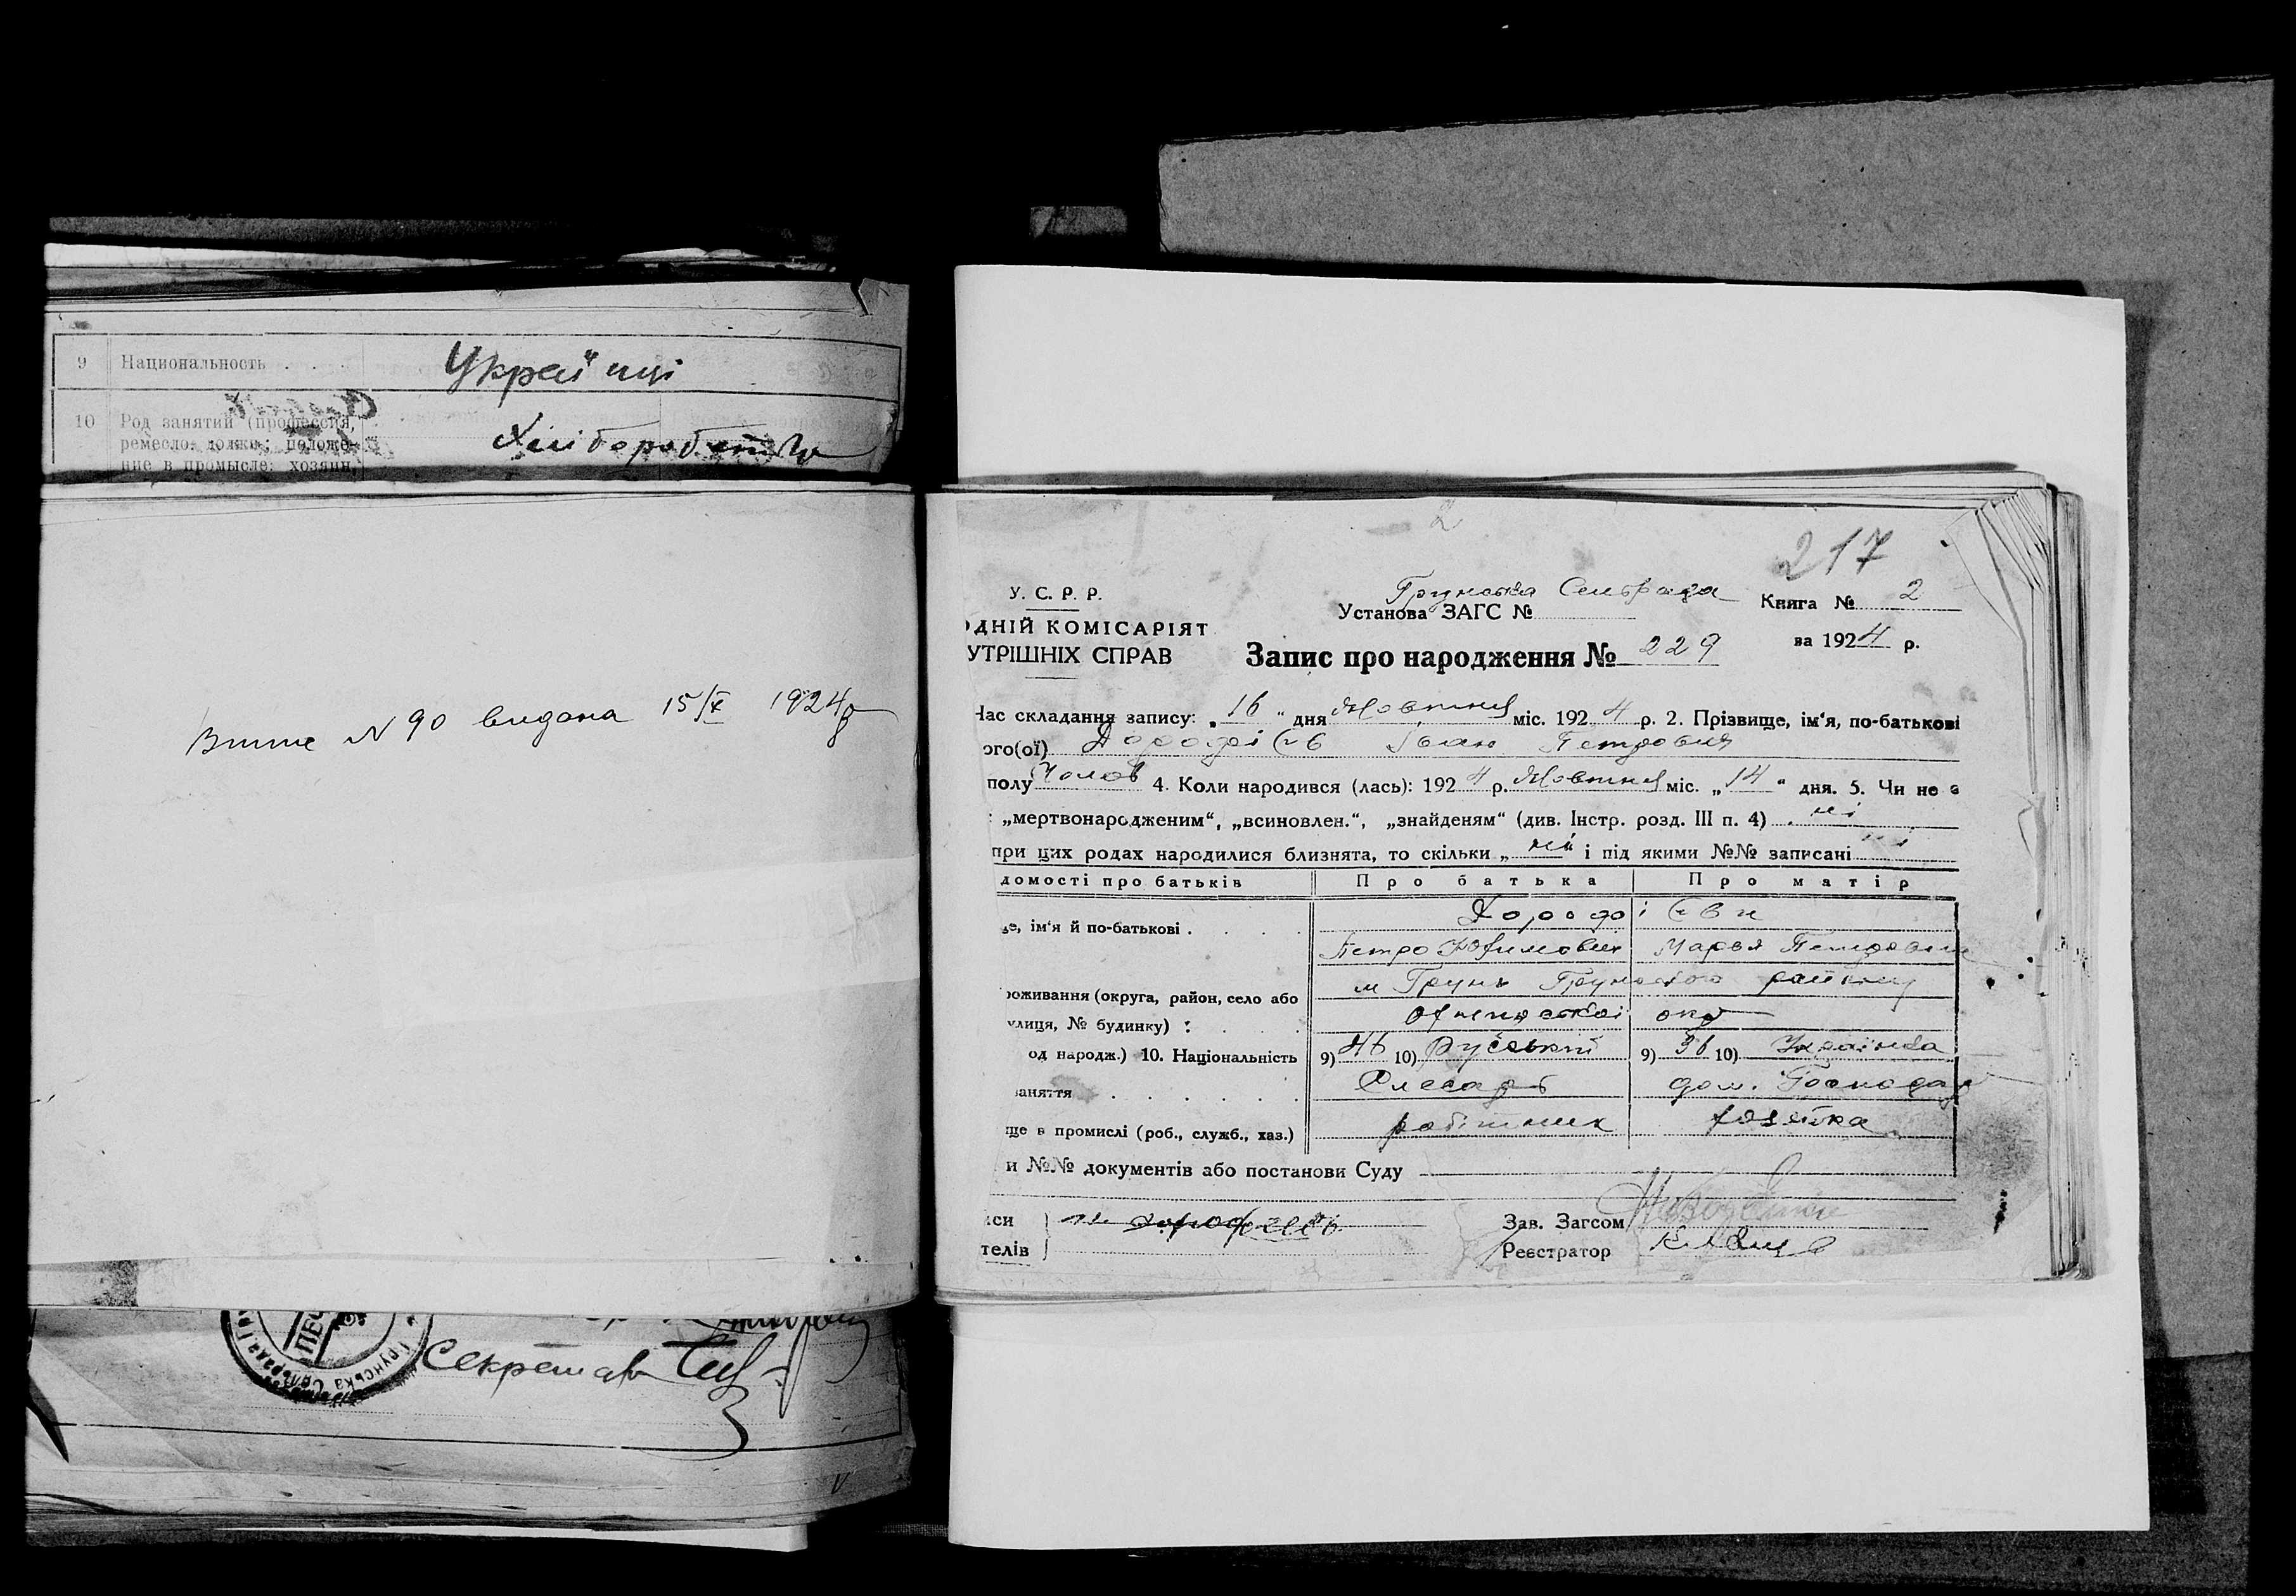 9 Национальность . . . Україіці
10 Род занятий (профессия,
ремесло, должн.; положе-
ние в промысле: хозяин,
Хліборобство
Витяг N 90 видана 15/X 1924 р
Грунська Сальрада
Секретар
2
217
У. С. Р. Р.
Грунська Сельрада
Установа ЗАГС №
Книга № 2
ОДНІЙ КОМІСАРІЯТ
УТРІШНІХ СПРАВ
Запис про народження № 229
за 1924 р.
Час складання запису: „16“ дня Жовтня міс. 1924 р. 2. Прізвище, ім'я, по-батькові
ого(ої) Дорофієв Іван Петрович
полу Чолов 4. Коли народився (лась): 1924 р. Жовтня міс. „14“ дня. 5. Чи не є
: „мертвонародженим“, „всиновлен.“, „знайденям“ (див. Інстр. розд. III п. 4) ні
при цих родах народилися близнята, то скільки „ні“ і під якими №№ записані ні
домості про батьків Про батька Про матір
Дорофієви
ім'я й по-батькові . . . .
Петро Юхимович Марья Петровна
м Грунь Грунського району
роживання (округа, район, село або
Охтирської окр
улиця, № будинку) : . . .
од народж.) 10. Національність 9) 46 10) Руський 9) 36 10) Українка
Слесарь дом. Господар
заняття . . . . . .
ще в промислі (роб., служб., хаз.) робітник хозяйка
и №№ документів або постанови Суду
иси
Зав. Загсом
телів
Реєстратор